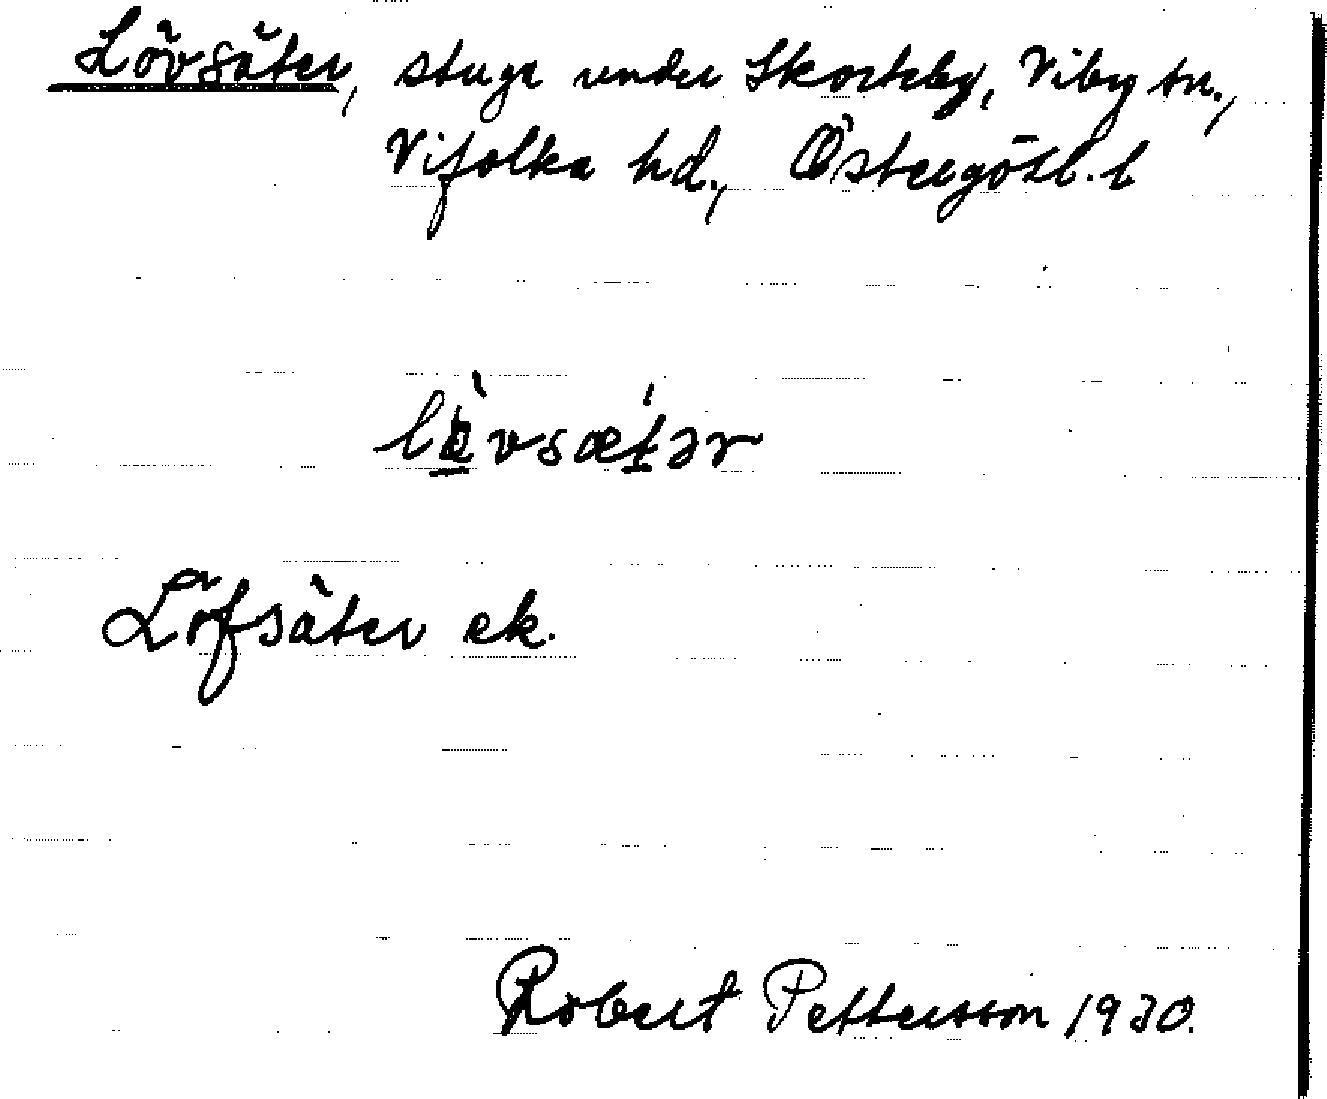 Lövsäter, stuga under Skorteby, Viby sn.,
Vifolka hd., Östergötl. l
lövsætər
Löfsäter ek.
Robert Pettersson 1930.